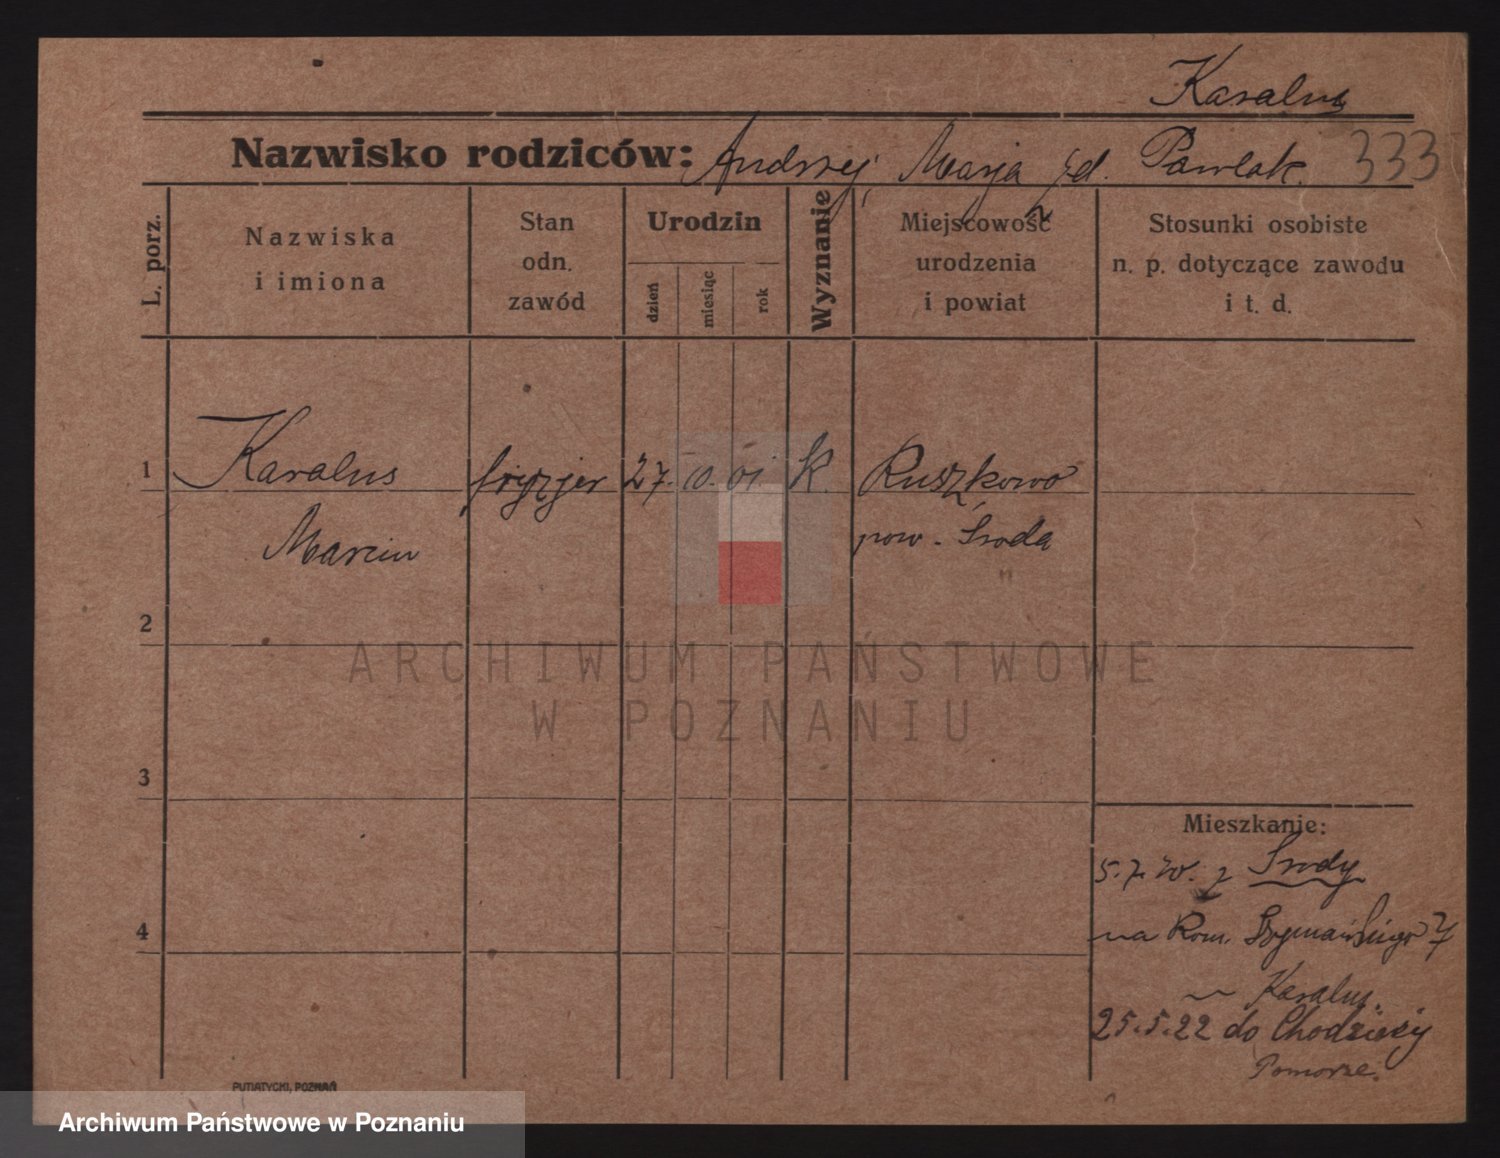 Karalus
Nazwisko rodziców: Andrzej, Marja zd. Pawlak. 333
L. porz.
Nazwiska
i imiona
Stan
odn.
zawód
Urodzin
dzień
miesiąc
rok
Wyznanie
Miejscowość
urodzenia
i powiat
Stosunki osobiste
n. p. dotyczące zawodu
i t. d.
1 Karalus fryzjer 27. 10. 01. K. Ruszkowo
Marcin pow. Środa
2
ARCHIWUM PAŃSTWOWE
W POZNANIU
3
Mieszkanie:
5.7. z Środy
4
na Rom. Szymańskiego 7
Karalus.
25.5.22 do Chodzieży
Pomorze.
PUTIATYCKI, POZNAŃ
Archiwum Państwowe w Poznaniu